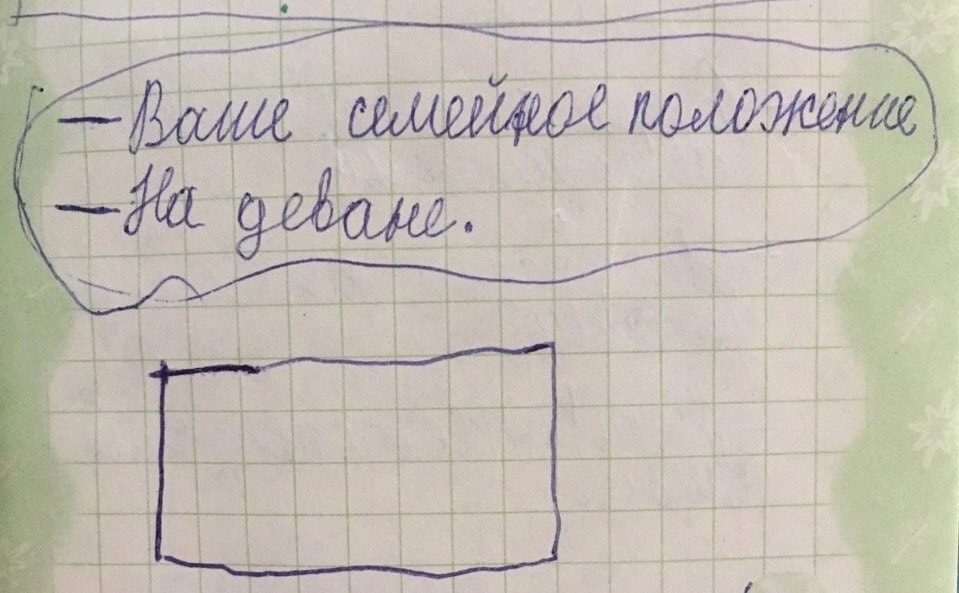 — Ваше семейное положение
— На деване.